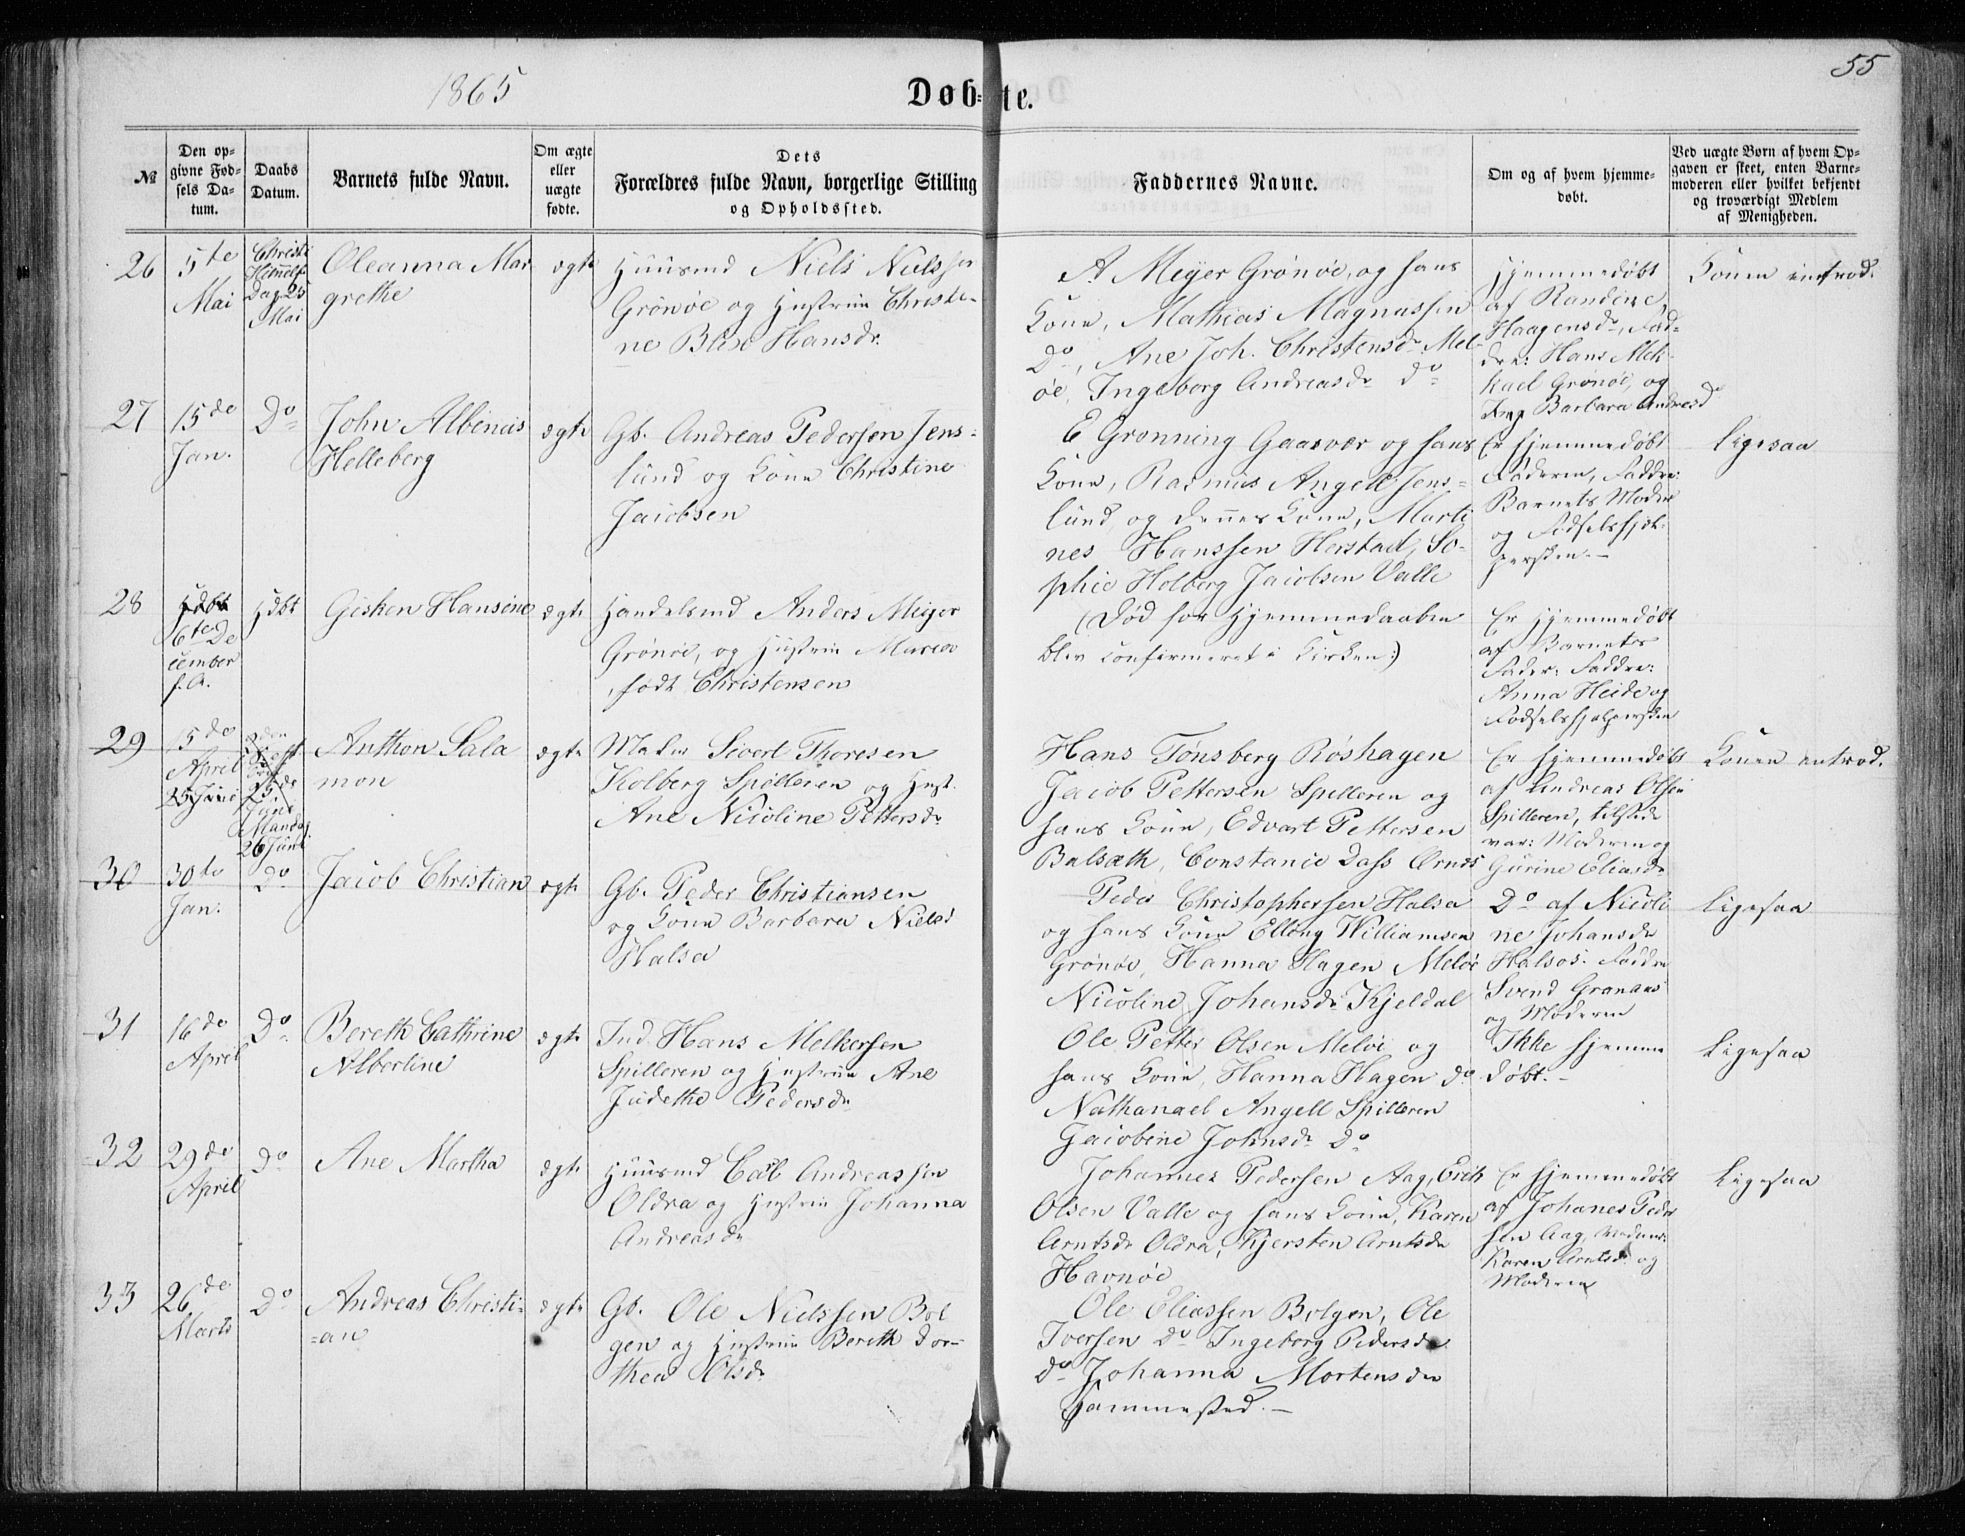 1865
Døbte.
55
№
Den op-
givne Fød-
sels Da-
tum.
Daabs
Datum.
Barnets fulde Navn.
Om ægte
eller
uægte
fødte.
Dets
Forældres fulde Navn, borgerlige Stilling
og Opholdssted.
Faddernes Navne.
Om og af hvem hjemme-
døbt.
Ved uægte Børn af hvem Op-
gaven er skeet, enten Barne-
moderen eller hvilket bekjendt
og troværdigt Medlem
af Menigheden.
26
5te
Mai
Christi
Himelf
Dag 25
Mai
Oleanna Mar
grethe
ægte
Huusmd Niels Nielssen
Grönöe og Hustrue Christi-
ne Blix Hansdr.
A. Meyer Grönöe, og hans
Kone, Mathias Magnussen
Do, Ane Joh. Christensdr Mel-
öe, Ingeborg Andreasdr Do
Hjemmedöbt
af Randine
Haagensdr, Fad-
dre: Hans Mek-
kael Grönöe, og
Barbara Andreasd
Konen introd.
27
15de
Jan.
Do
John Albinus
Helleberg
ægte
Gb. Andreas Pedersen Jens-
lund og Kone Christine
Jacobsen
E Grønning Gaasvær og hans
Kone, Rasmus Angell Jens-
lund og dennes Kone, Marti
nes Hanssen Herstad, So-
phie Holberg Jacobsen Valle
Er hjemmedöbt
Faderen, Faddre:
Barnets Moder
og Födselshjæl-
persken.-
Ligesaa
28
Hdbt
6te De
cember
f. A.
Hdbt
Gisken Hansine
ægte
Handelsmd Anders Meyer
Grönöe, og Hustrue Maren
, født Christensen
(Död før Hjemmedaaben
blev confirmeret i Kirken:)
Er Hjemmedöbt
af Barnets
Fader: Faddre:
Anna Heide og
Födselshjelpersken
29
15de
April
25 Juni
25de
Juni
Mandag
26 Juni
Anthon Sala
mon
ægte
Sivert Thoresen
Kolberg Spilleren og Hust.
Ane Nicoline Pettersdr
Hans Tønsberg Røshagen
Jacob Pettersen Spilleren og
hans Kone, Edvart Pettersen
Balsæth, Constance Dass Ørnes
Er hjemmedöbt
af Andreas Olsen
Spilleren, tilstede
var: Moderen og
Gurine Eliasdr
Konen introd.
30
30te
Jan.
Do
Jacob Christian
ægte
Gb. Peder Christiansen
og Kone Barbara Nielsd
Halsa
Peder Christophersen Halsa
og hans Kone Ellony Williamsen
Grönöe, Hanna Hagen Melöe
Nicoline Johansdr Kjeldal
Do af Nicoli
ne Johansdr
Halsos. Faddre
Svend Granaas
og Moderen
Ligesaa
31
16de
April
Do
Bereth Cathrine
Albertine
ægte
Ind. Hans Melkersen
Spilleren og Hustrue Ane
Judethe Pedersdr
Ole Petter Olsen Melöe og
hans Kone, Hanna Hagen do
Nathanael Angell Spilleren
Jacobine Johnsdr Do
Ikke hjemme
döbt.-
Ligesaa
32
29de
April
Do
Ane Martha
ægte
Huusmd Carl Andreassen
Oldra og Hustrue Johanna
Andreasdr
Johannes Pedersen Aag, Erik
Olsen Valle og hans Kone, Karen
Arntsdr Oldra, Kjersten Arntsdr
Havnöe
Er hjemmedöbt
af Johanes Peder
sen Aag,
Karen Arntsdr og
Moderen
Ligesaa
33
26de
Marts
Do
Andreas Christi-
=an
ægte
Gb. Ole Nielssen Bol
gen og Hustrue Bereth Dor-
thea Olsdr
Ole Eliassen Bolgen, Ole
Iversen Do Ingeborg Pedersdr
do Johanna Mortensdr
Hammested.-